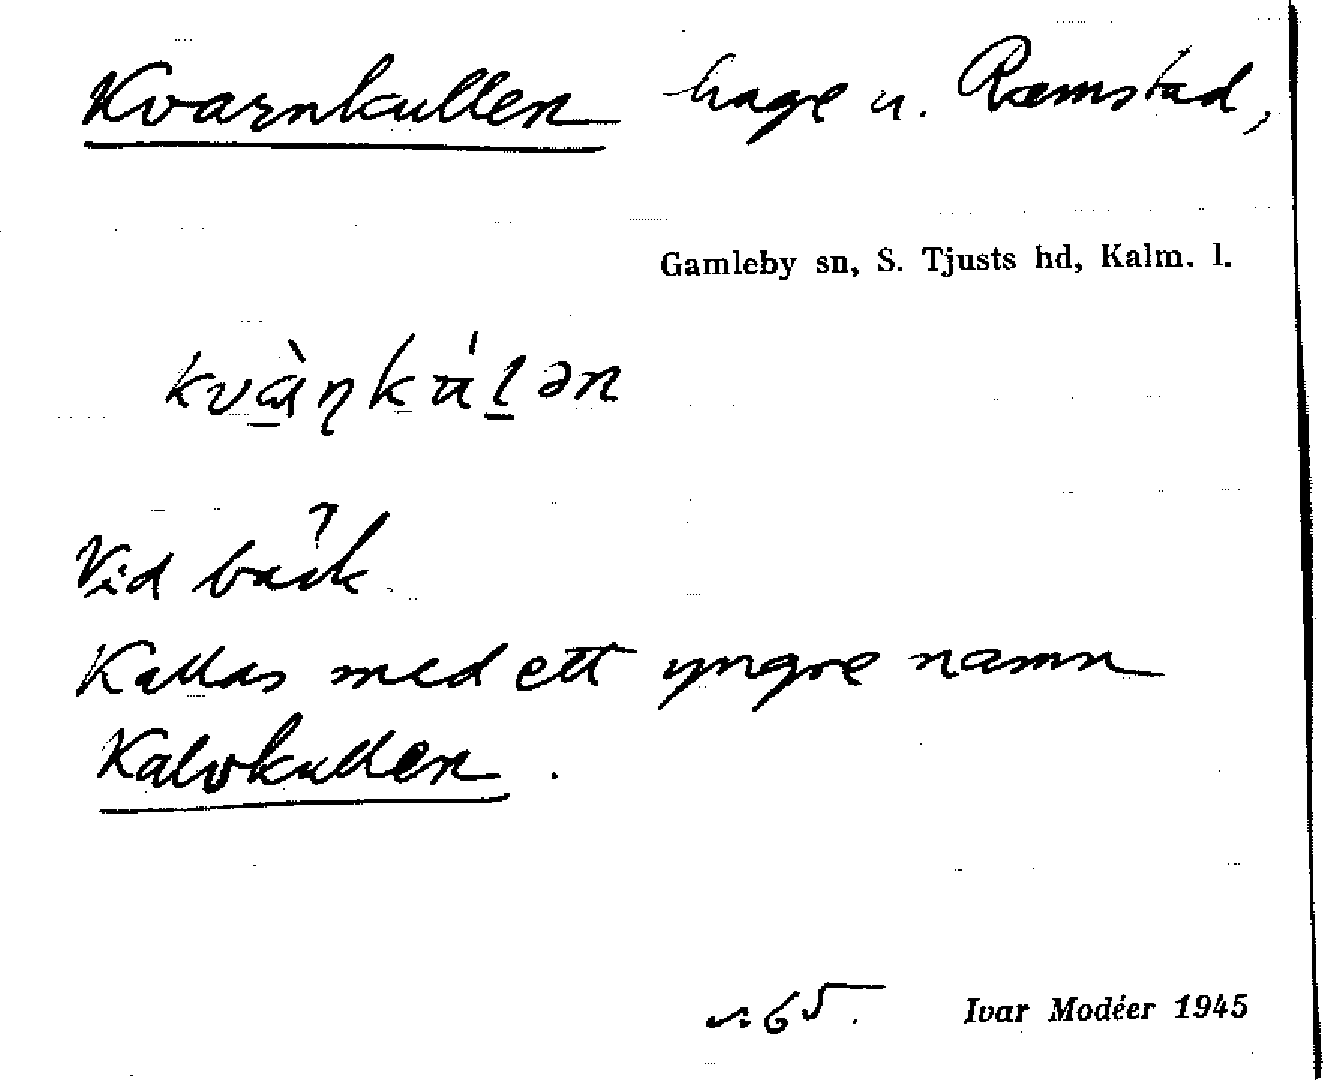 Kvarnkullen hage u. Ramstad,
Gamleby sn, S. Tjusts hd, Kalm. l.
kvàṇkúlən
Vid bäck.
Kallas med ett yngre namn
Kalvkullen.
65. Ivar Modéer 1945